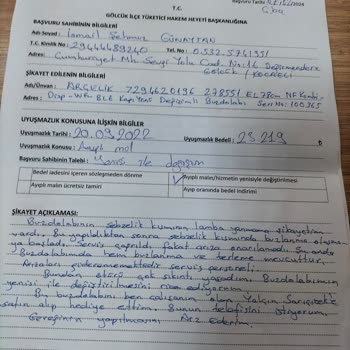 T.C. Başvuru Tarihi 2024
GÖLCÜK İLÇE TÜKETİCİ HAKEM HEYETİ BAŞKANLIĞINA
BAŞVURU SAHİBİNİN BİLGİLERİ
Adı Soyadı : İsmail Şehmuz GÜNAYTAN
T.C. Kimlik No: 29444489240 Tel. No: 0.532.5741951
Adresi: Cumhuriyet Mh. Sevgi Yolu Cad. No:16 Değirmendere
Gölcük / KOCAELİ
ŞİKAYET EDİLENİN BİLGİLERİ
Adı/Ünvan: ARÇELİK 7294620196 278551 EL
Adres: Buzdolabı Seri No: 100365
UYUŞMAZLIK KONUSUNA İLİŞKİN BİLGİLER
Uyuşmazlık Tarihi: 20.09.2022 Uyuşmazlık Bedeli: 23.219
Uyuşmazlık Konusu: Ayıplı mal
Başvuru Sahibinin Talebi: Yenisi ile değişim
Bedel iadesini içeren sözleşmeden dönme
Ayıplı malın/hizmetin yenisiyle değiştirilmesi
Ayıplı malın ücretsiz tamiri
Ayıp oranında bedel indirimi
ŞİKAYET AÇIKLAMASI:
Buzdolabının sebzelik kısmının lamba yanmama şikayetim
vardı. Bu yapıldıktan sonra sebzelik kısmında buzlanma oluşma
ya başladı. Servis çağrıldı fakat arıza onarılamadı. Şu anda
Buzdolabımda hem buzlanma ve terleme mevcuttur.
Arızaları giderememektedir servis personeli.
Bundan ötürü çok sıkıntı yaşadım. Buzdolabımın
yenisi ile değiştirilmesini rica ediyorum.
Bu buzdolabını ben çalışanım olan Yalçın
satın alıp hediye ettim. Bunun telafisini istiyorum.
Gereğinin yapılmasını Arz ederim.